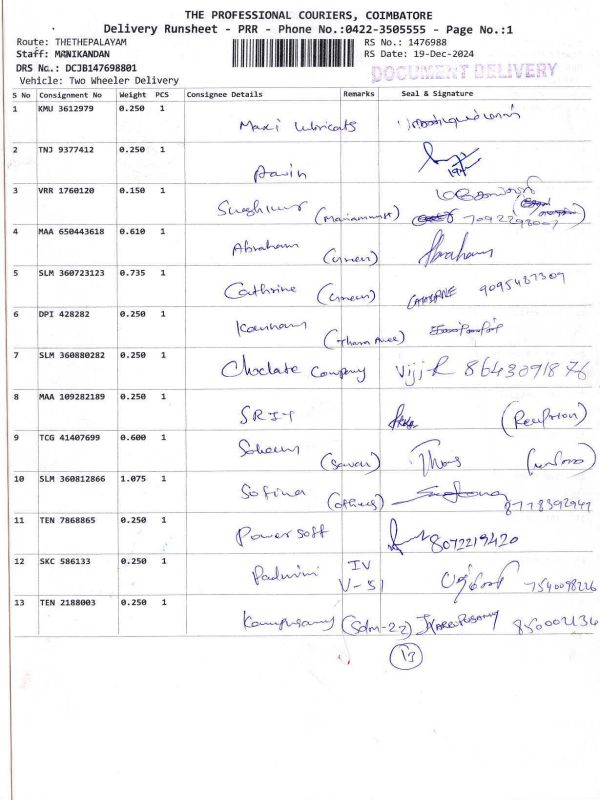 THE PROFESSIONAL COURIERS, COIMBATORE
Delivery Runsheet - PRR - Phone No.:0422-3505555 - Page No.:1
Route: THETHEPALAYAM RS No.: 1476988
Staff: MANIKANDAN RS Date: 19-Dec-2024
DRS No.: DCJB147698801 DOCUMENT DELIVERY
Vehicle: Two Wheeler Delivery
S No Consignment No Weight PCS Consignee Details Remarks Seal & Signature
1 KMU 3612979 0.250 1
Maxi lubricats
2 TNJ 9377412 0.250 1
Aavin
3 VRR 1760120 0.150 1
4 MAA 650443618 0.610 1
Abraham Abraham
5 SLM 360723123 0.735 1
Cathrine 9095487309
6 DPI 428282 0.250 1
7 SLM 360880282 0.250 1
Choclate Company Viji-R 8643091876
8 MAA 109282189 0.250 1
SRIT (Reception)
9 TCG 41407699 0.600 1
10 SLM 360812866 1.075 1
Sofina (others) 8778392947
11 TEN 7868865 0.250 1
Powersoft 8072219420
12 SKC 586133 0.250 1 IV
Padmini V-51 7540098226
13 TEN 2188003 0.250 1
(Sdm-22)
13